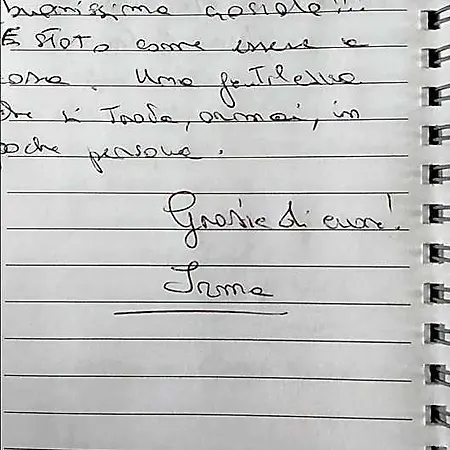 buonissima
È stato come essere a
casa. Una gentilezza
che si trova, ormai, in
poche persone.
Grazie di cuore!
Irma